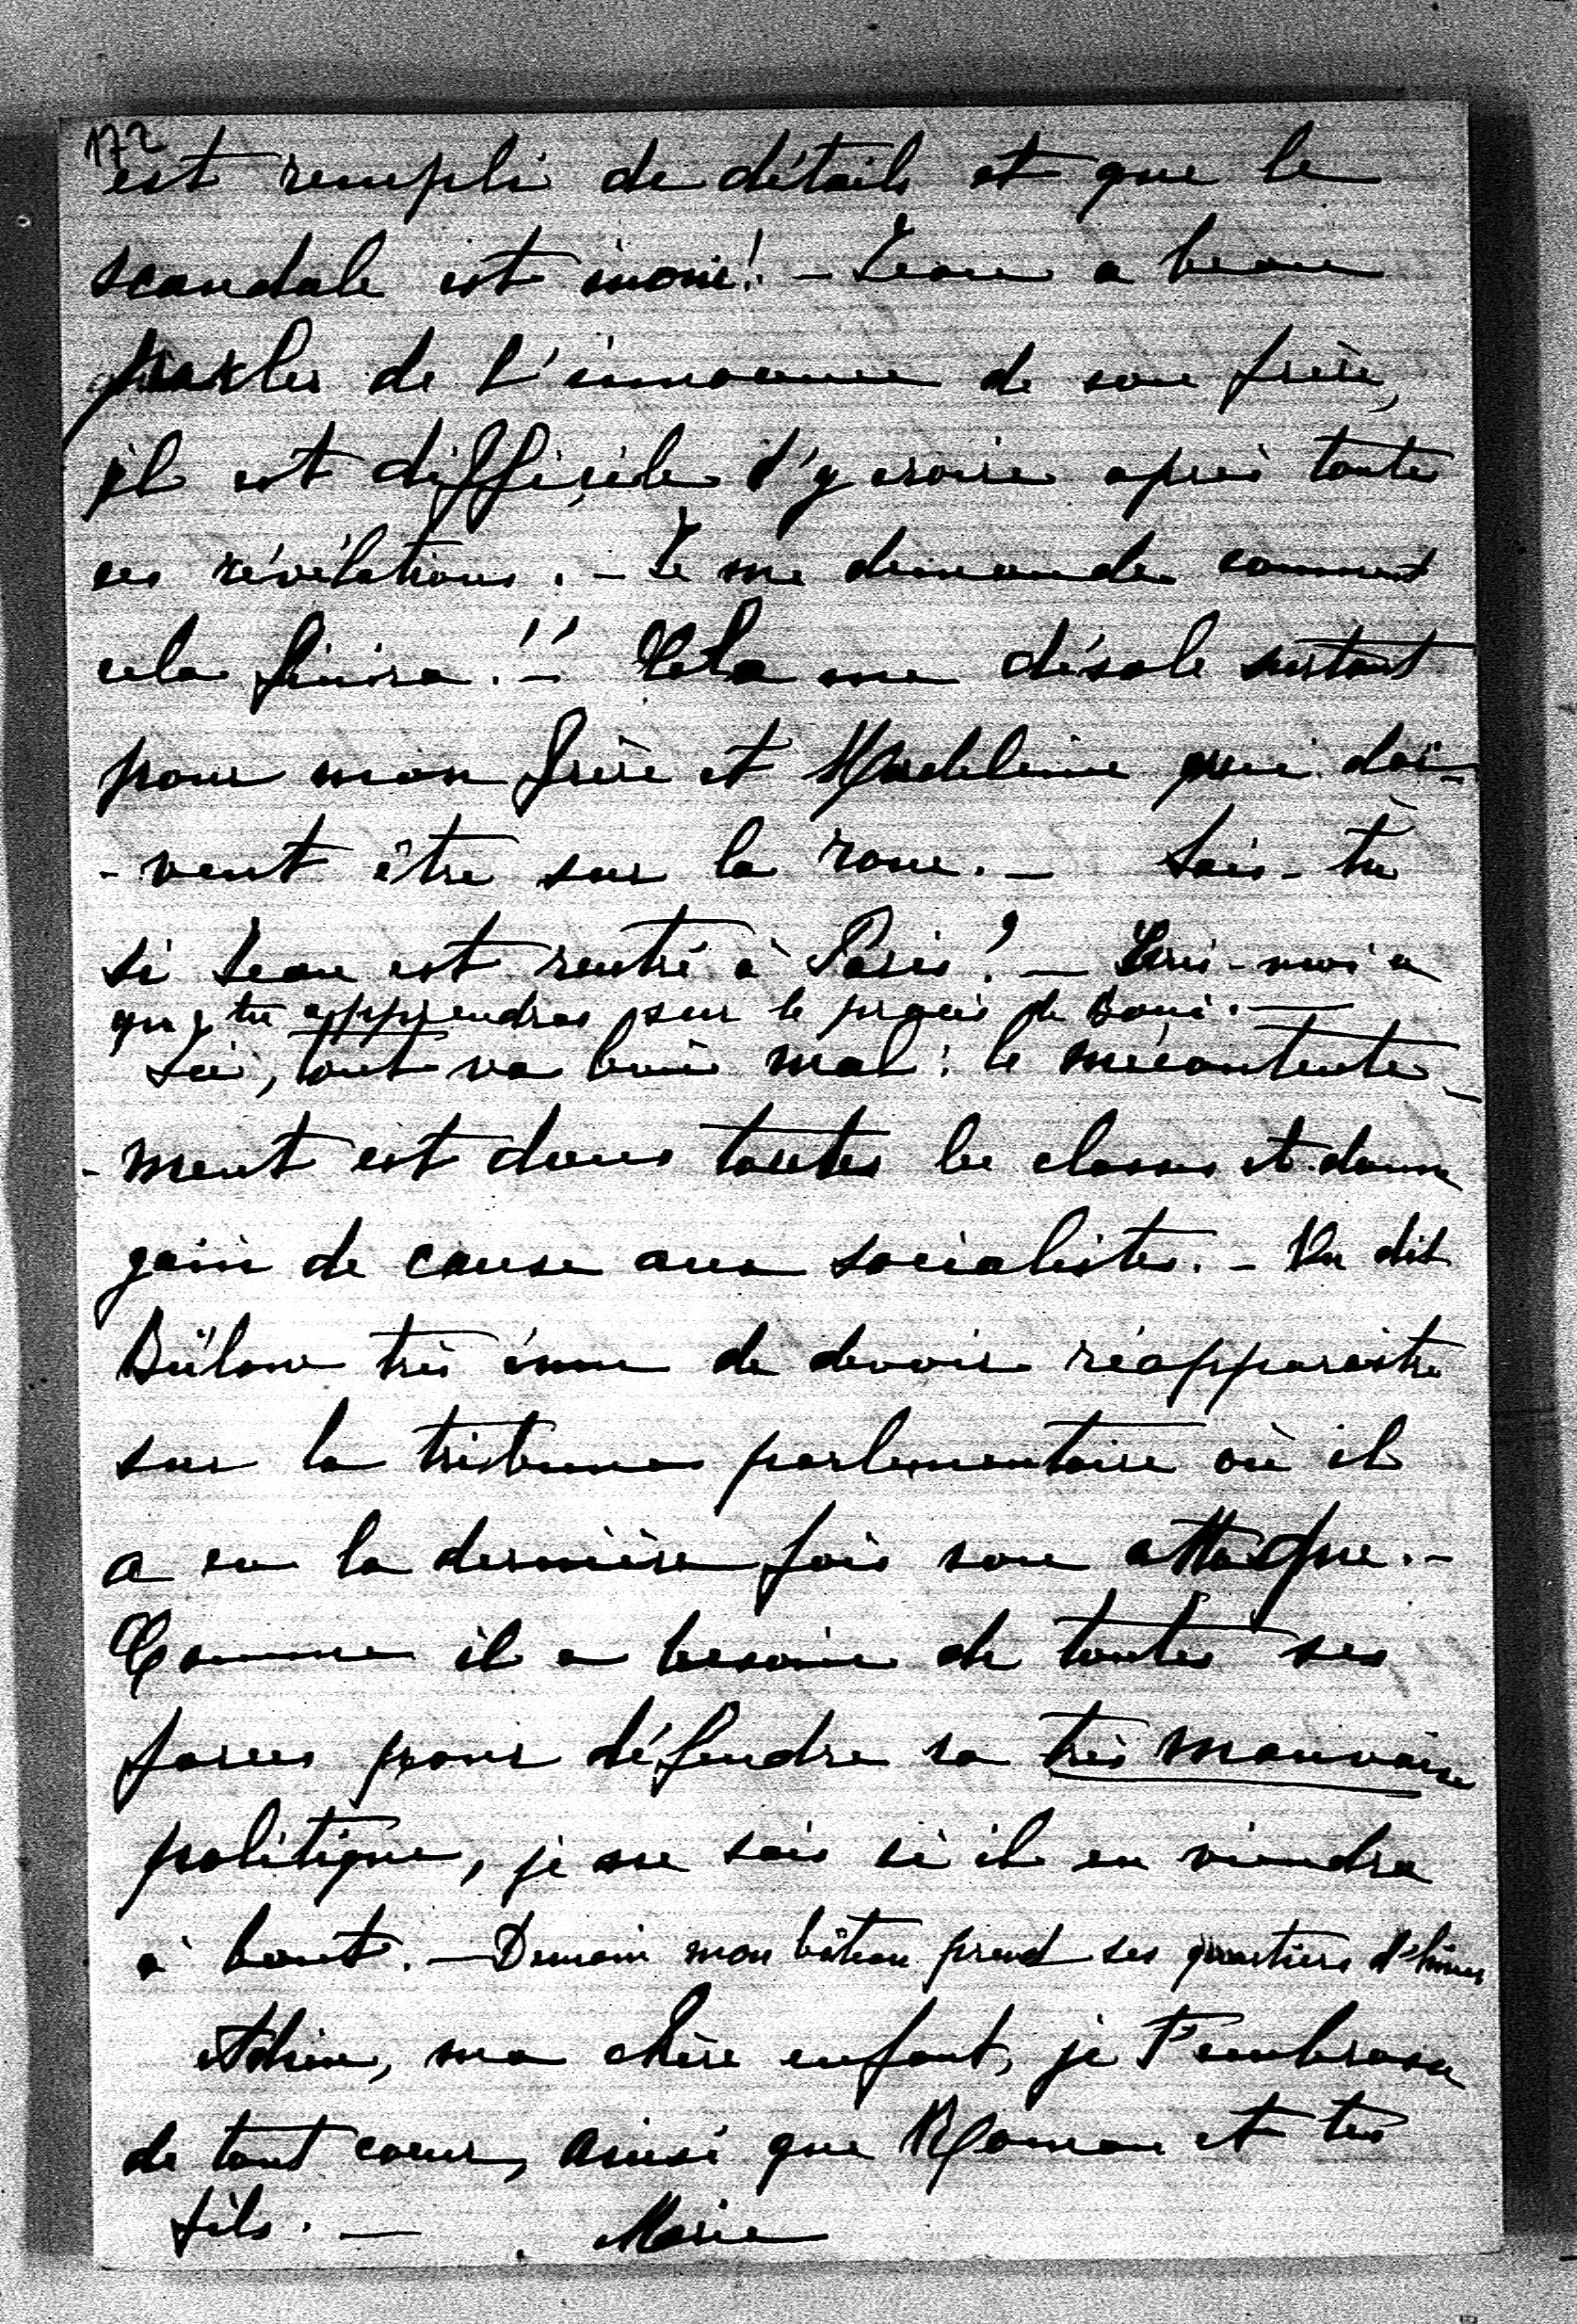 172
est rempli de détails et que le
scandale est inouï! – Jean a beau
parler de l'innocence de son frère,
il est difficile d'y croire après toutes
ces révélations. – Je me demande comment
cela finira! – Cela me désole surtout
pour mon frère et Madeleine qui doi-
-vent être sur la roue. – Sais-tu
si Jean est rentré à Paris? – Écris-moi ce
que tu apprendras sur le procès de Boni. –
Ici, tout va bien mal: le mécontente-
-ment est dans toutes les classes et donne
gain de cause aux socialistes. – On dit
Bülow très ému de devoir réapparaître
sur la tribune parlementaire où il
a eu la dernière fois son attaque. –
Comme il a besoin de toutes ses
forces pour défendre sa très mauvaise
politique, je ne sais si il en viendra
à bout. – Demain mon bâteau prend ses quartiers d'hiver
Adieu, ma chère enfant, je t'embrasse
de tout coeur, ainsi que Roman et tes
fils. – Marie